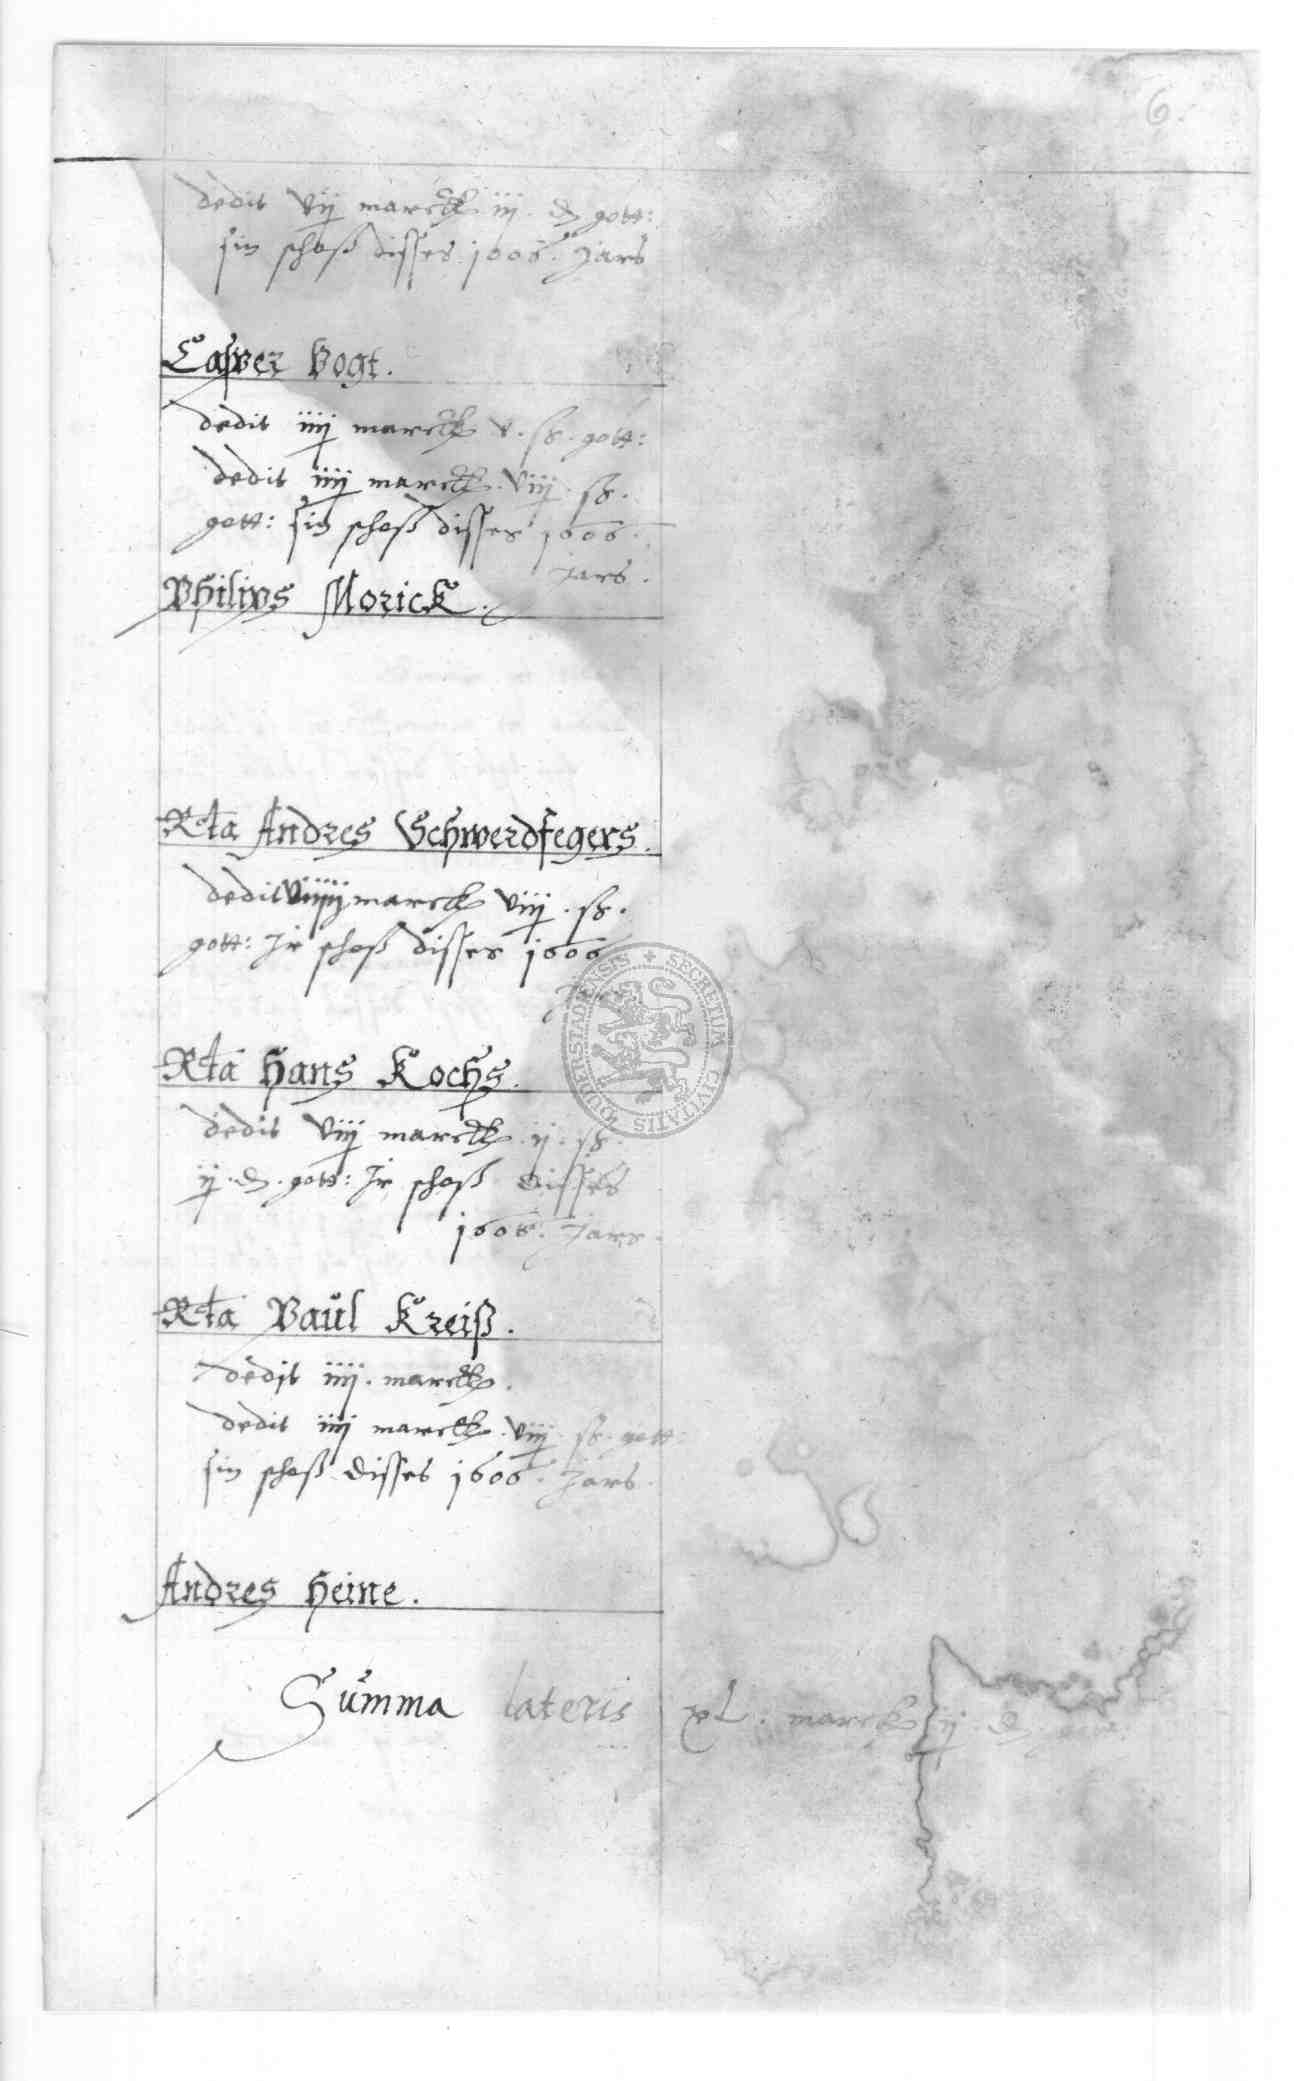 6.
dedit vij marck iij ₰ gott:
sin schoß disses 1606 Jars
Casper Vogt.
dedit iiij marck v. ß. gott:
dedit iiij marck. viij. ß.
gott: sin schoß disses 1606.
Jars.
Philips Morick.
Rta Andres Schwerdfegers.
dedit marck viij. ß.
gott: Jr schoß disses 1606
Rta Hans Kochs.
dedit viij marck. ij. ß.
ij. ₰. gott: Jr schoß disses
1606. Jars.
Rta Paul Kreiß.
dedit iiij. marck.
dedit iiij marck. viij ß. gott:
sin schoß disses 1606. Jars.
Andres Heine.
Summa lateris xL. marck ij ₰
SECRETUM CIVITATIS DUDERSTADIENSIS